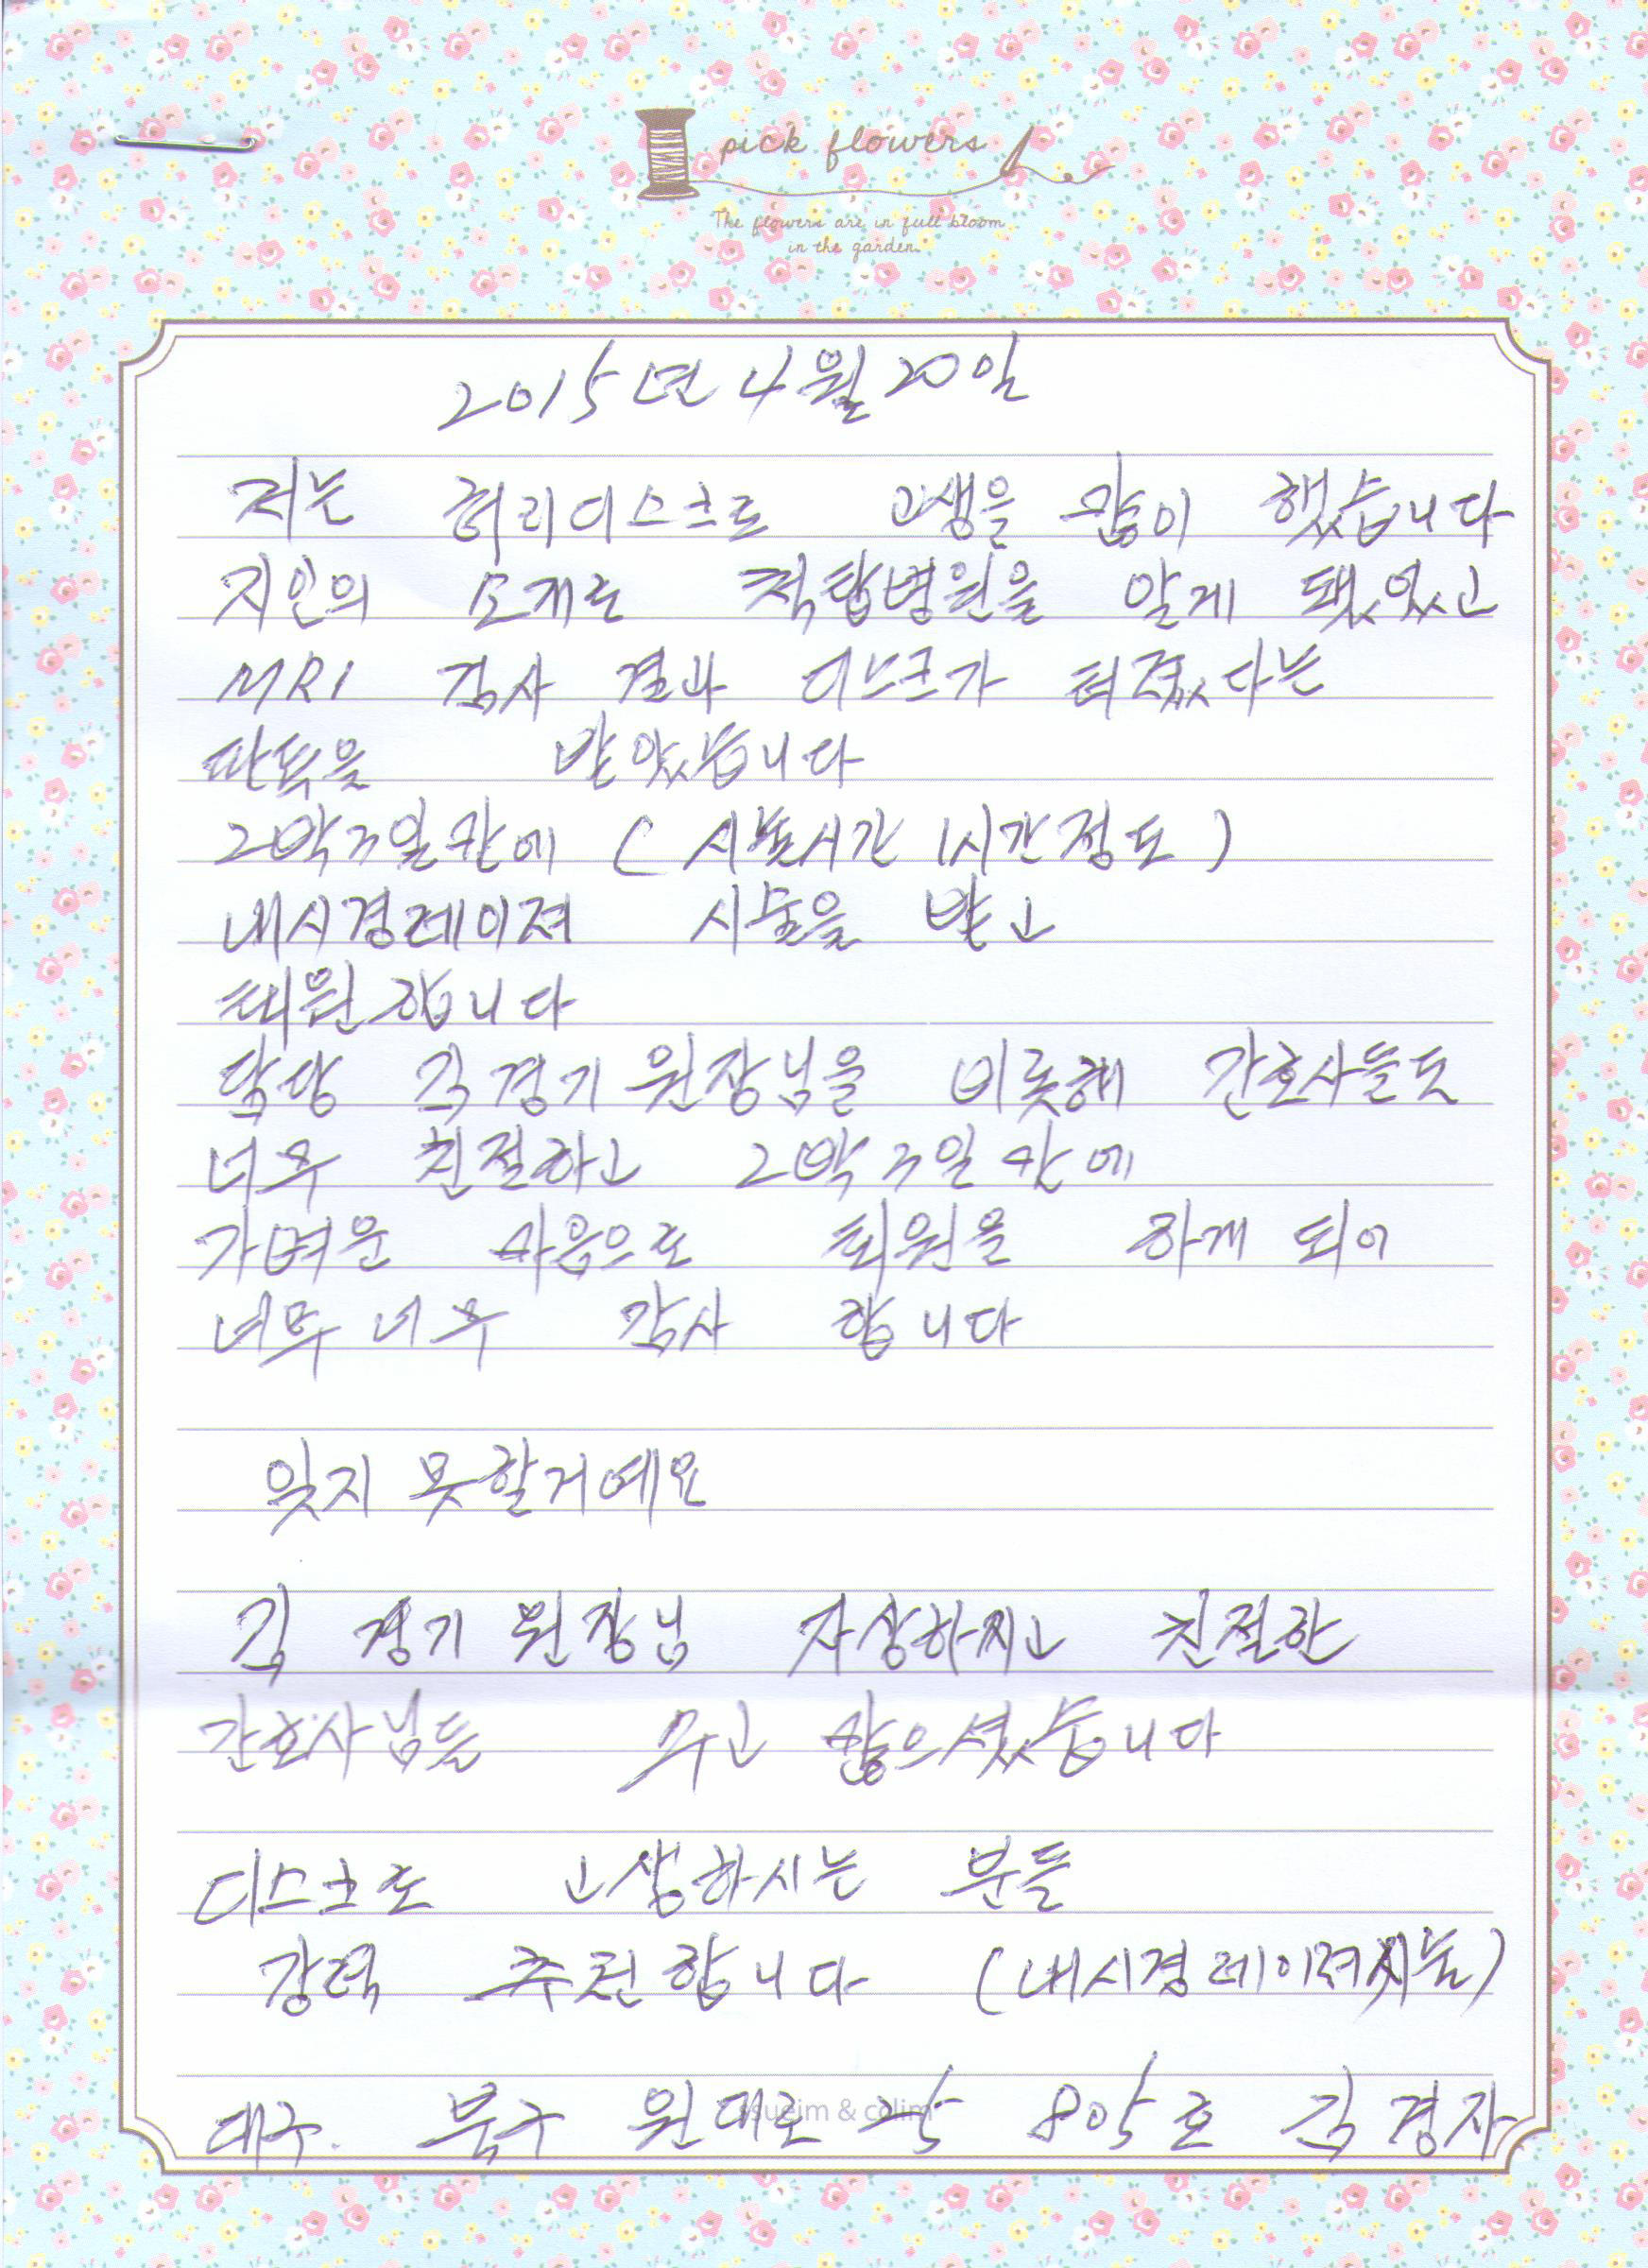 pick flowers
The flowers are in full bloom
in the garden.
2015년 4월 20일
저는 허리디스크로 고생을 많이 했습니다
지인의 소개로 척탑병원을 알게 됐었고
MRI 검사 결과 디스크가 터졌다는
판독을 받았습니다
2박3일만에 ( 시술시간 1시간정도 )
내시경레이져 시술을 받고
퇴원합니다
담당 김경기 원장님을 비롯해 간호사들도
너무 친절하고 2박3일만에
가벼운 마음으로 퇴원을 하게 되어
너무너무 감사 합니다
잊지 못할거예요
김 경기 원장님 자상하시고 친절한
간호사님들 수고 많으셨습니다
디스크로 고생하시는 분들
강력 추천합니다 (내시경레이져시술)
대구. 북구 원대로 호 김경자